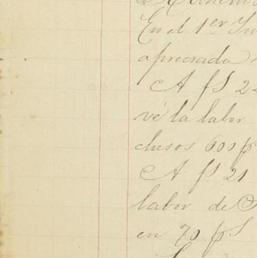 En el 1er In
apreciada
A fs 2
vé la labor
clusos 600 p
A fs 21
labor de S
en 70 ps